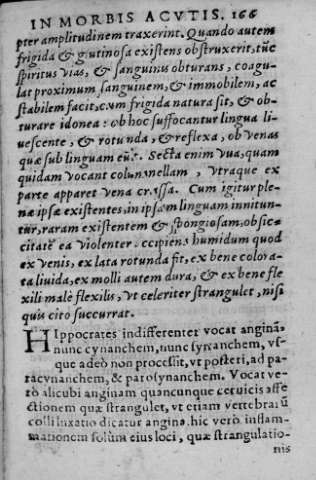 IN MORBIS ACVTIS. 166
pter amplitudinem traxerint. Quando autem
frigida & glutinosa existens obstruxerit, tũc
spiritus vias, & sanguinis obturans, coagu-
lat proximum sanguinem, & immobilem, ac
stabilem facit, cum frigida natura sit, & ob-
turare idonea: ob hoc suffocantur lingua li-
uescente, & rotunda, & reflexa, ob venas
quæ sub linguam eũt. Secta enim vua, quam
quidam vocant columellam, vtraque ex
parte apparet vena crassa. Cum igitur plenæ
næ ipsæ existentes, in ipsam linguam innitun-
tur, raram existentem & spongiosam, ob sic-
citatẽ ea violenter accipiens humidum quod
ex venis, ex lata rotunda fit, ex bene colora-
ta liuida, ex molli autem dura, & ex bene fle
xili malè flexilis, vt celeriter strangulet, nisi
quis cito succurrat.
HIppocrates indifferenter vocat anginã,
nunc cynanchem, nunc synanchem, vs-
que adeò non processit, vt posteri, ad pa-
racynanchem, & parosynanchem. Vocat ve-
rò alicubi anginam quancunque ceruicis affe
ctionem quæ strangulet, vt etiam vertebrarũ
colli luxatio dicatur angina. hic verò inflam-
mationem solùm eius loci, quæ strangulatio-
nis